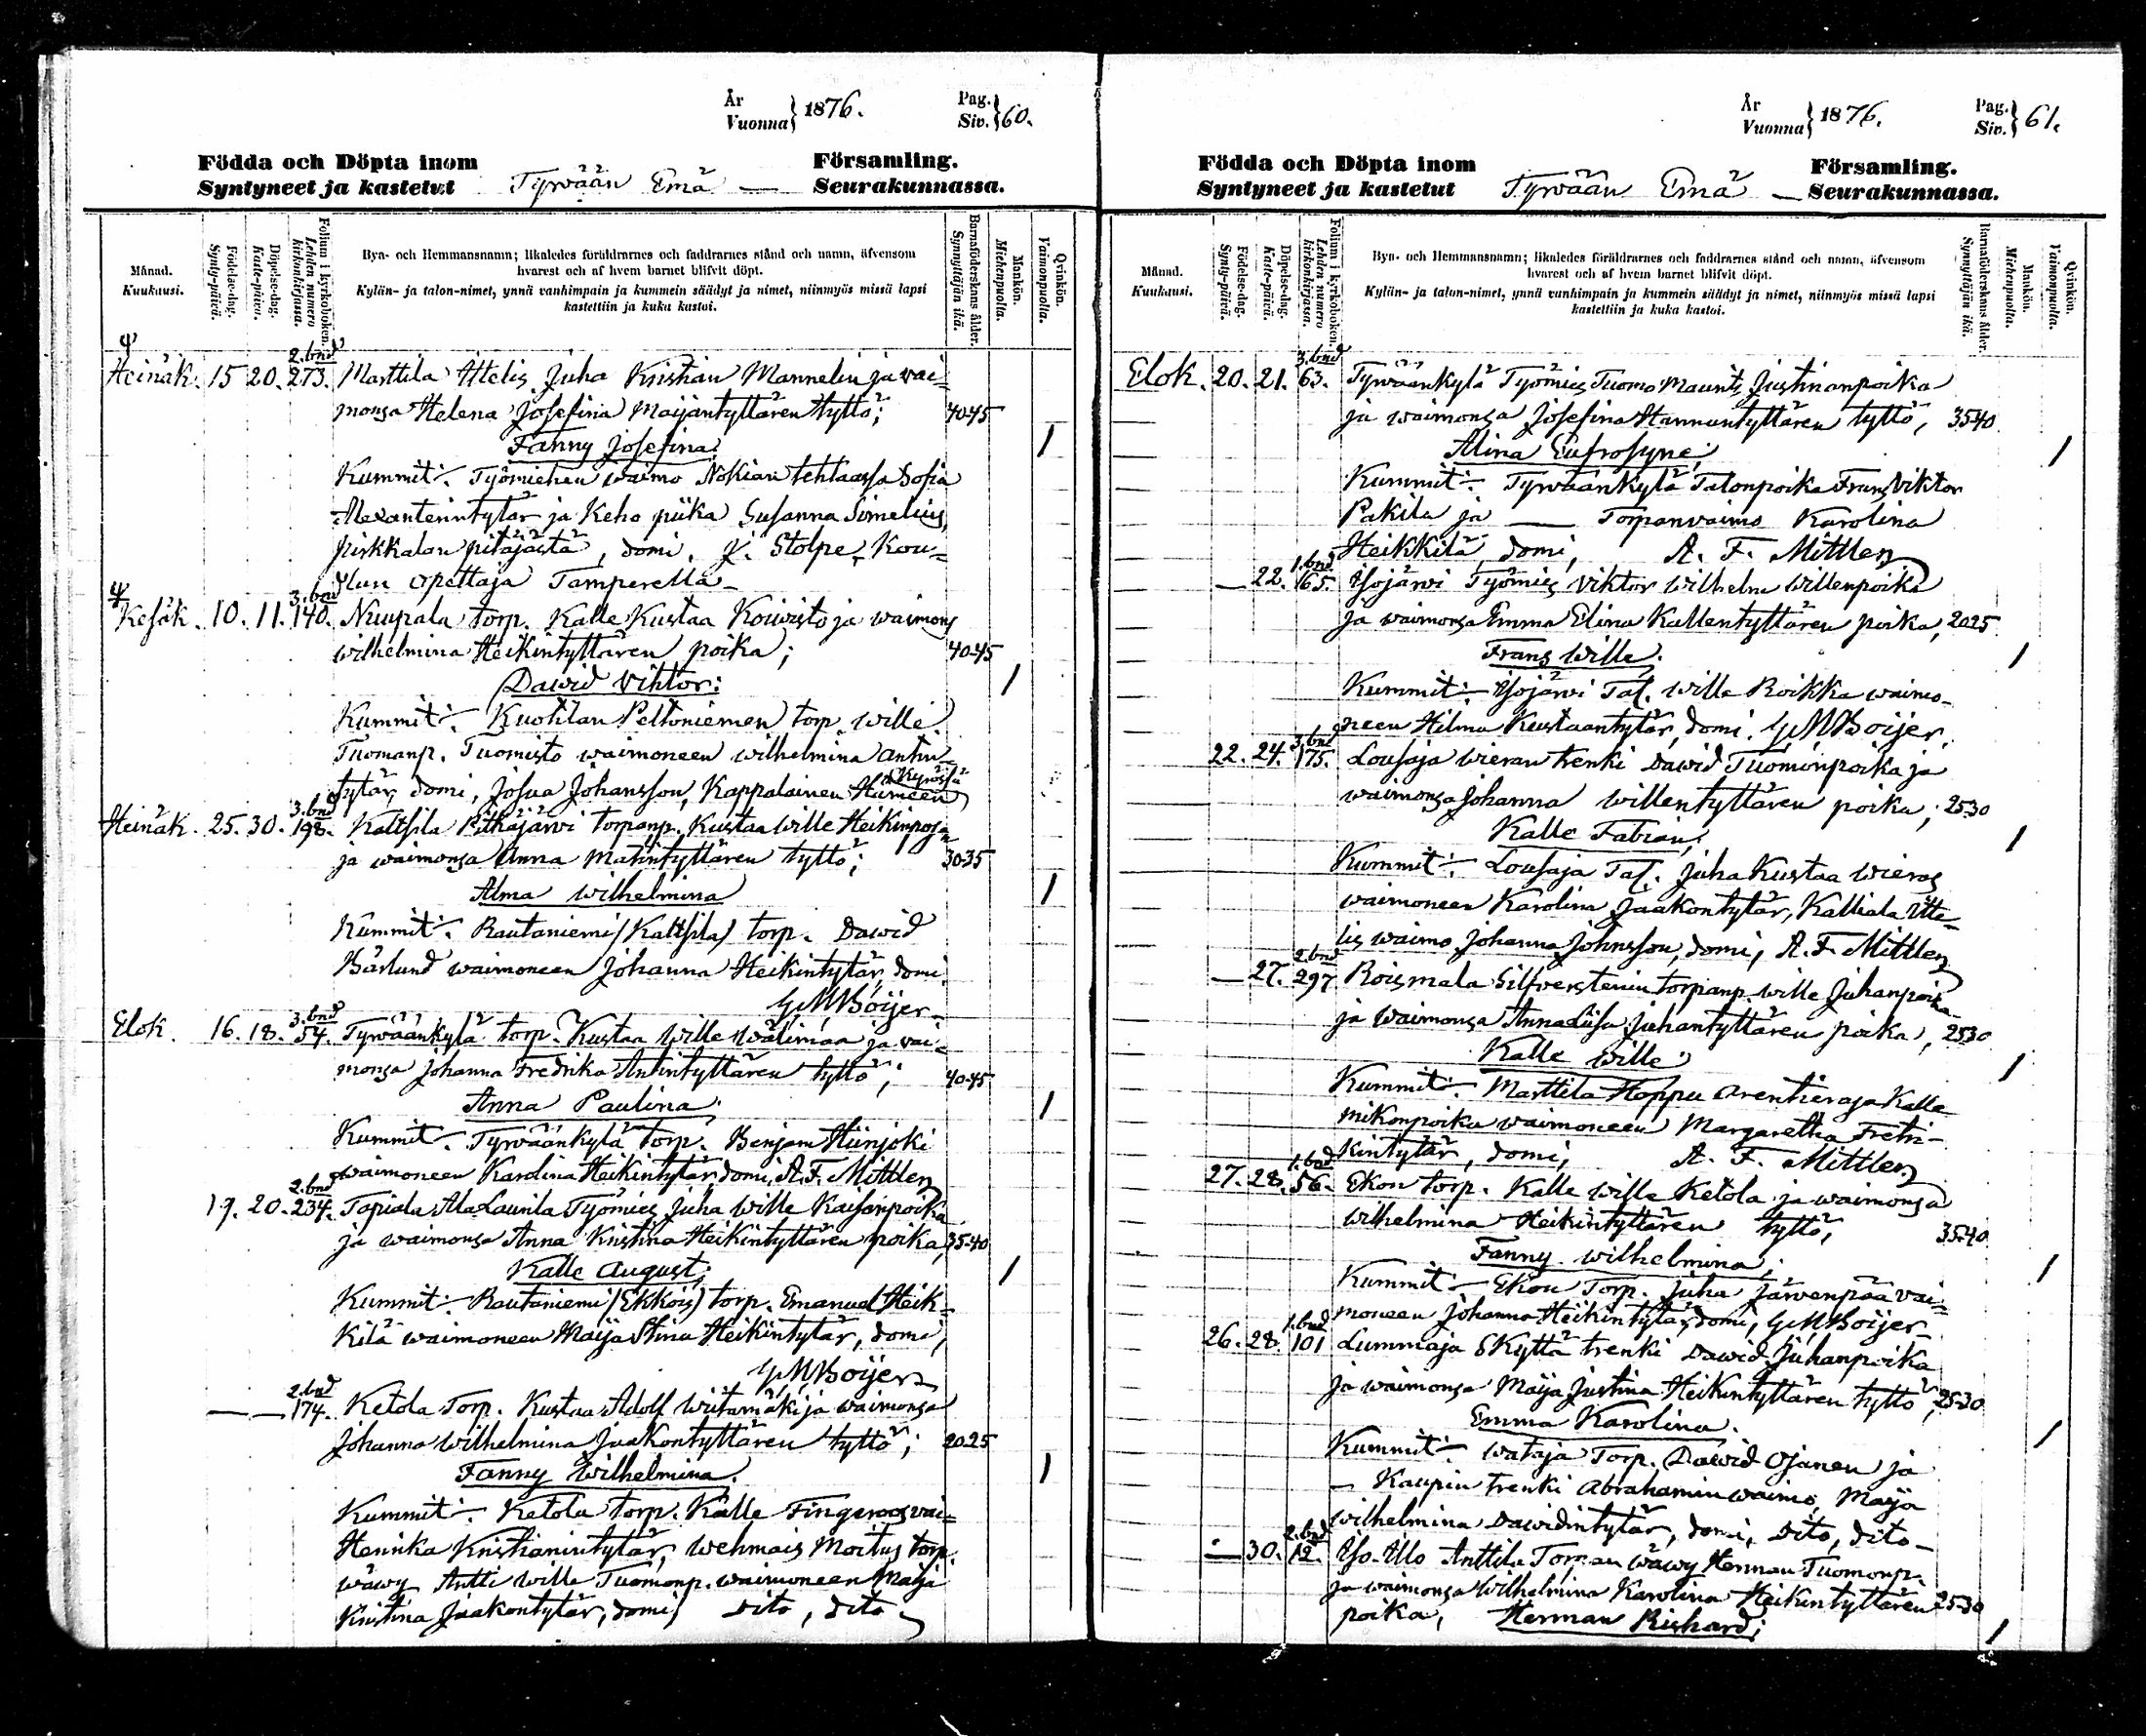 År
Vuonna } 1876.
Pag.
Siv. } 60.
Födda och Döpta inom
Syntyneet ja kastetut
Tyrvään Emä —
Församling.
Seurakunnassa.
Månad.
Kuukausi.
Födelse-dag.
Synty-päivä.
Döpelse-dag.
Kaste-päivä.
Folium i kyrkoboken.
Lehden numero kirkonkirjassa.
Bya- och Hemmansnamn; likaledes föräldrarnes och faddrarnes stånd och namn, äfvensom
hvarest och af hvem barnet blifvit döpt.
Kylän- ja talon-nimet, ynnä vanhimpain ja kummein säädyt ja nimet, niinmyös missä lapsi
kastettiin ja kuka kastoi.
Barnaföderskans ålder.
Synnyttäjän ikä.
Mankön.
Miehenpuolta.
Qvinkön.
Vaimonpuolta.
Heinäk. 15 20. 2. bnd 273. Marttila Ittelis Juha Kristian Mannelin ja wai-
monsa Helena Josefina Maijantyttären tyttö; 40-45
Fanny Josefina; 1
Kummit:- Työmiehen waimo Nokian tehtaassa Sofia
Alexanterintytär ja Keho piika Susanna Simelius,
Pirkkalan pitäjästä, domi. J. Stolpe, Kou-
lun opettaja Tamperella-
Kesäk. 10. 11. 3. bnd 140. Nuupala torp. Kalle Kustaa Koiwisto ja waimons
wilhelmina Heikintyttären poika; 40-45
Dawid Viktor: 1
Kummit:- Kuotilan Peltoniemen torp. wille
Tuomanp. Tuomisto waimoneen wilhelmina antin-
tytär, domi, Josua Johansson, Kappalainen Hämeen Kyrössä
Heinäk. 25. 30. 3. bnd 198. Kaltsila Pitkäjärvi torpanp. Kustaa Wille Heikinpoja
ja waimonsa Anna Matintyttären tyttö; 30-35
Alma wilhelmina 1
Kummit:- Rautaniemi (Kaltsila) torp. Dawid
Bärlund waimoneen Johanna Heikintytär, domi
G.M. Boijer-
Elok. 16. 18. 3. bnd 54. Tyrväänkylä torp. Kustaa Wille Wälimaa ja wai-
monsa Johanna Fredrika Antintyttären tyttö; 40-45
Anna Paulina; 1
Kummit:- Tyrväänkylä torp. Benjam Hiirijoki
waimoneen Karolina Heikintytär, domi, A.F. Mittler
19. 20. 2. bnd 234. Tapiala Ala Launila Työmies Juha Wille Kaisanpoika
ja waimonsa Anna Kristina Heikintyttären poika, 35-40
Kalle August; 1
Kummit:- Rautaniemi (Ekkois) torp. Emanuel Heik-
kilä waimoneen Maija Stina Heikintytär, domi,
G.M. Boijer
— — 2. bnd 174. Ketola Torp. Kustaa Adolf Wiitamäki ja waimonsa
Johanna wilhelmina Jaakontyttären tyttö; 20-25
Fanny Wilhelmina. 1
Kummit:- Ketola torp. Kalle Fingeroos wai-
Henrika Kristianintytär, wehmais Moitus torp.
wäwy Antti wille Tuomonp. waimoneen Maija
Kristina Jaakontytär, domi, dito, dito
År
Vuonna } 1876.
Pag.
Siv. } 61.
Födda och Döpta inom
Syntyneet ja kastetut
Tyrvään Emä —
Församling.
Seurakunnassa.
Månad.
Kuukausi.
Födelse-dag.
Synty-päivä.
Döpelse-dag.
Kaste-päivä.
Folium i kyrkoboken.
Lehden numero kirkonkirjassa.
Bya- och Hemmansnamn; likaledes föräldrarnes och faddrarnes stånd och namn, äfvensom
hvarest och af hvem barnet blifvit döpt.
Kylän- ja talon-nimet, ynnä vanhimpain ja kummein säädyt ja nimet, niinmyös missä lapsi
kastettiin ja kuka kastoi.
Barnaföderskans ålder.
Synnyttäjän ikä.
Mankön.
Miehenpuolta.
Qvinkön.
Vaimonpuolta.
Elok. 20. 21. 3. bnd 63. Tyrväänkylä Työmies Tuomo Maurits Justinanpoika
ja waimonsa Josefina Hannuntyttären tyttö, 35-40
Alina Eufrosyne; 1
Kummit:- Tyrväänkylä Talonpoika Frans Viktor
Pakila ja — Torpanvaimo Karolina
Heikkilä, domi, A. F. Mittler
— 22. 1. bnd 165. Isojärvi Työmies Viktor Wilhelm Willenpoika
ja waimonsa Emma Elina Kallentyttären poika, 20-25
Frans Wille. 1
Kummit:- Isojärvi Tal. Wille Roikka waimo-
neen Hilma Kustaantytär, domi. G.M. Boijer.
22. 24. 3. bnd 175. Lousaja Wieran trenki Dawid Tuomonpoika ja
waimonsa Johanna Willentyttären poika, 25-30
Kalle Fabian; 1
Kummit:- Lousaja Tal. Juha Kustaa Wieras
waimoneen Karolina Jaakontytär, Kalliala Itte-
lis waimo Johanna Johnsson, domi, A. F. Mittler
— 27. 2. bnd 297 Roismala Silfverstenin torpanp. Wille Juhanpoika
ja waimonsa Anna Liisa Juhantyttären poika, 25-30
Kalle Wille 1
Kummit:- Marttila Hoppu arentieraja Kalle
Mikonpoika waimoneen Margaretha Fretri-
kintytär, domi, A. F. Mittler
27. 28. 1. bnd 56. Ekon torp. Kalle Wille Ketola ja waimonsa
Wilhelmina Heikintyttären tyttö, 35-40
Fanny wilhelmina; 1
Kummit:- Ekon Torp. Juha Järvenpää vai-
moneen Johanna Heikintytär, domi, G.M. Boijer
26. 28. 1. bnd 101 Lummaja Skyttä trenki Dawid Juhanpoika
ja waimonsa Maija Justina Heikintyttären tyttö, 25-30
Emma Karolina. 1
Kummit:- Wataja Torp. Dawid Ojanen ja
— Kaupin trenki Abrahamin waimo, Maija
Wilhelmina Dawidintytär, domi, dito, dito-
— 30. 2. bnd 12. Iso-Ulo Anttila Torpan wäwy Herman Tuomonp.
ja waimonsa Wilhelmina Karolina Heikintyttären 25-30
poika, Herman Rishard; 1